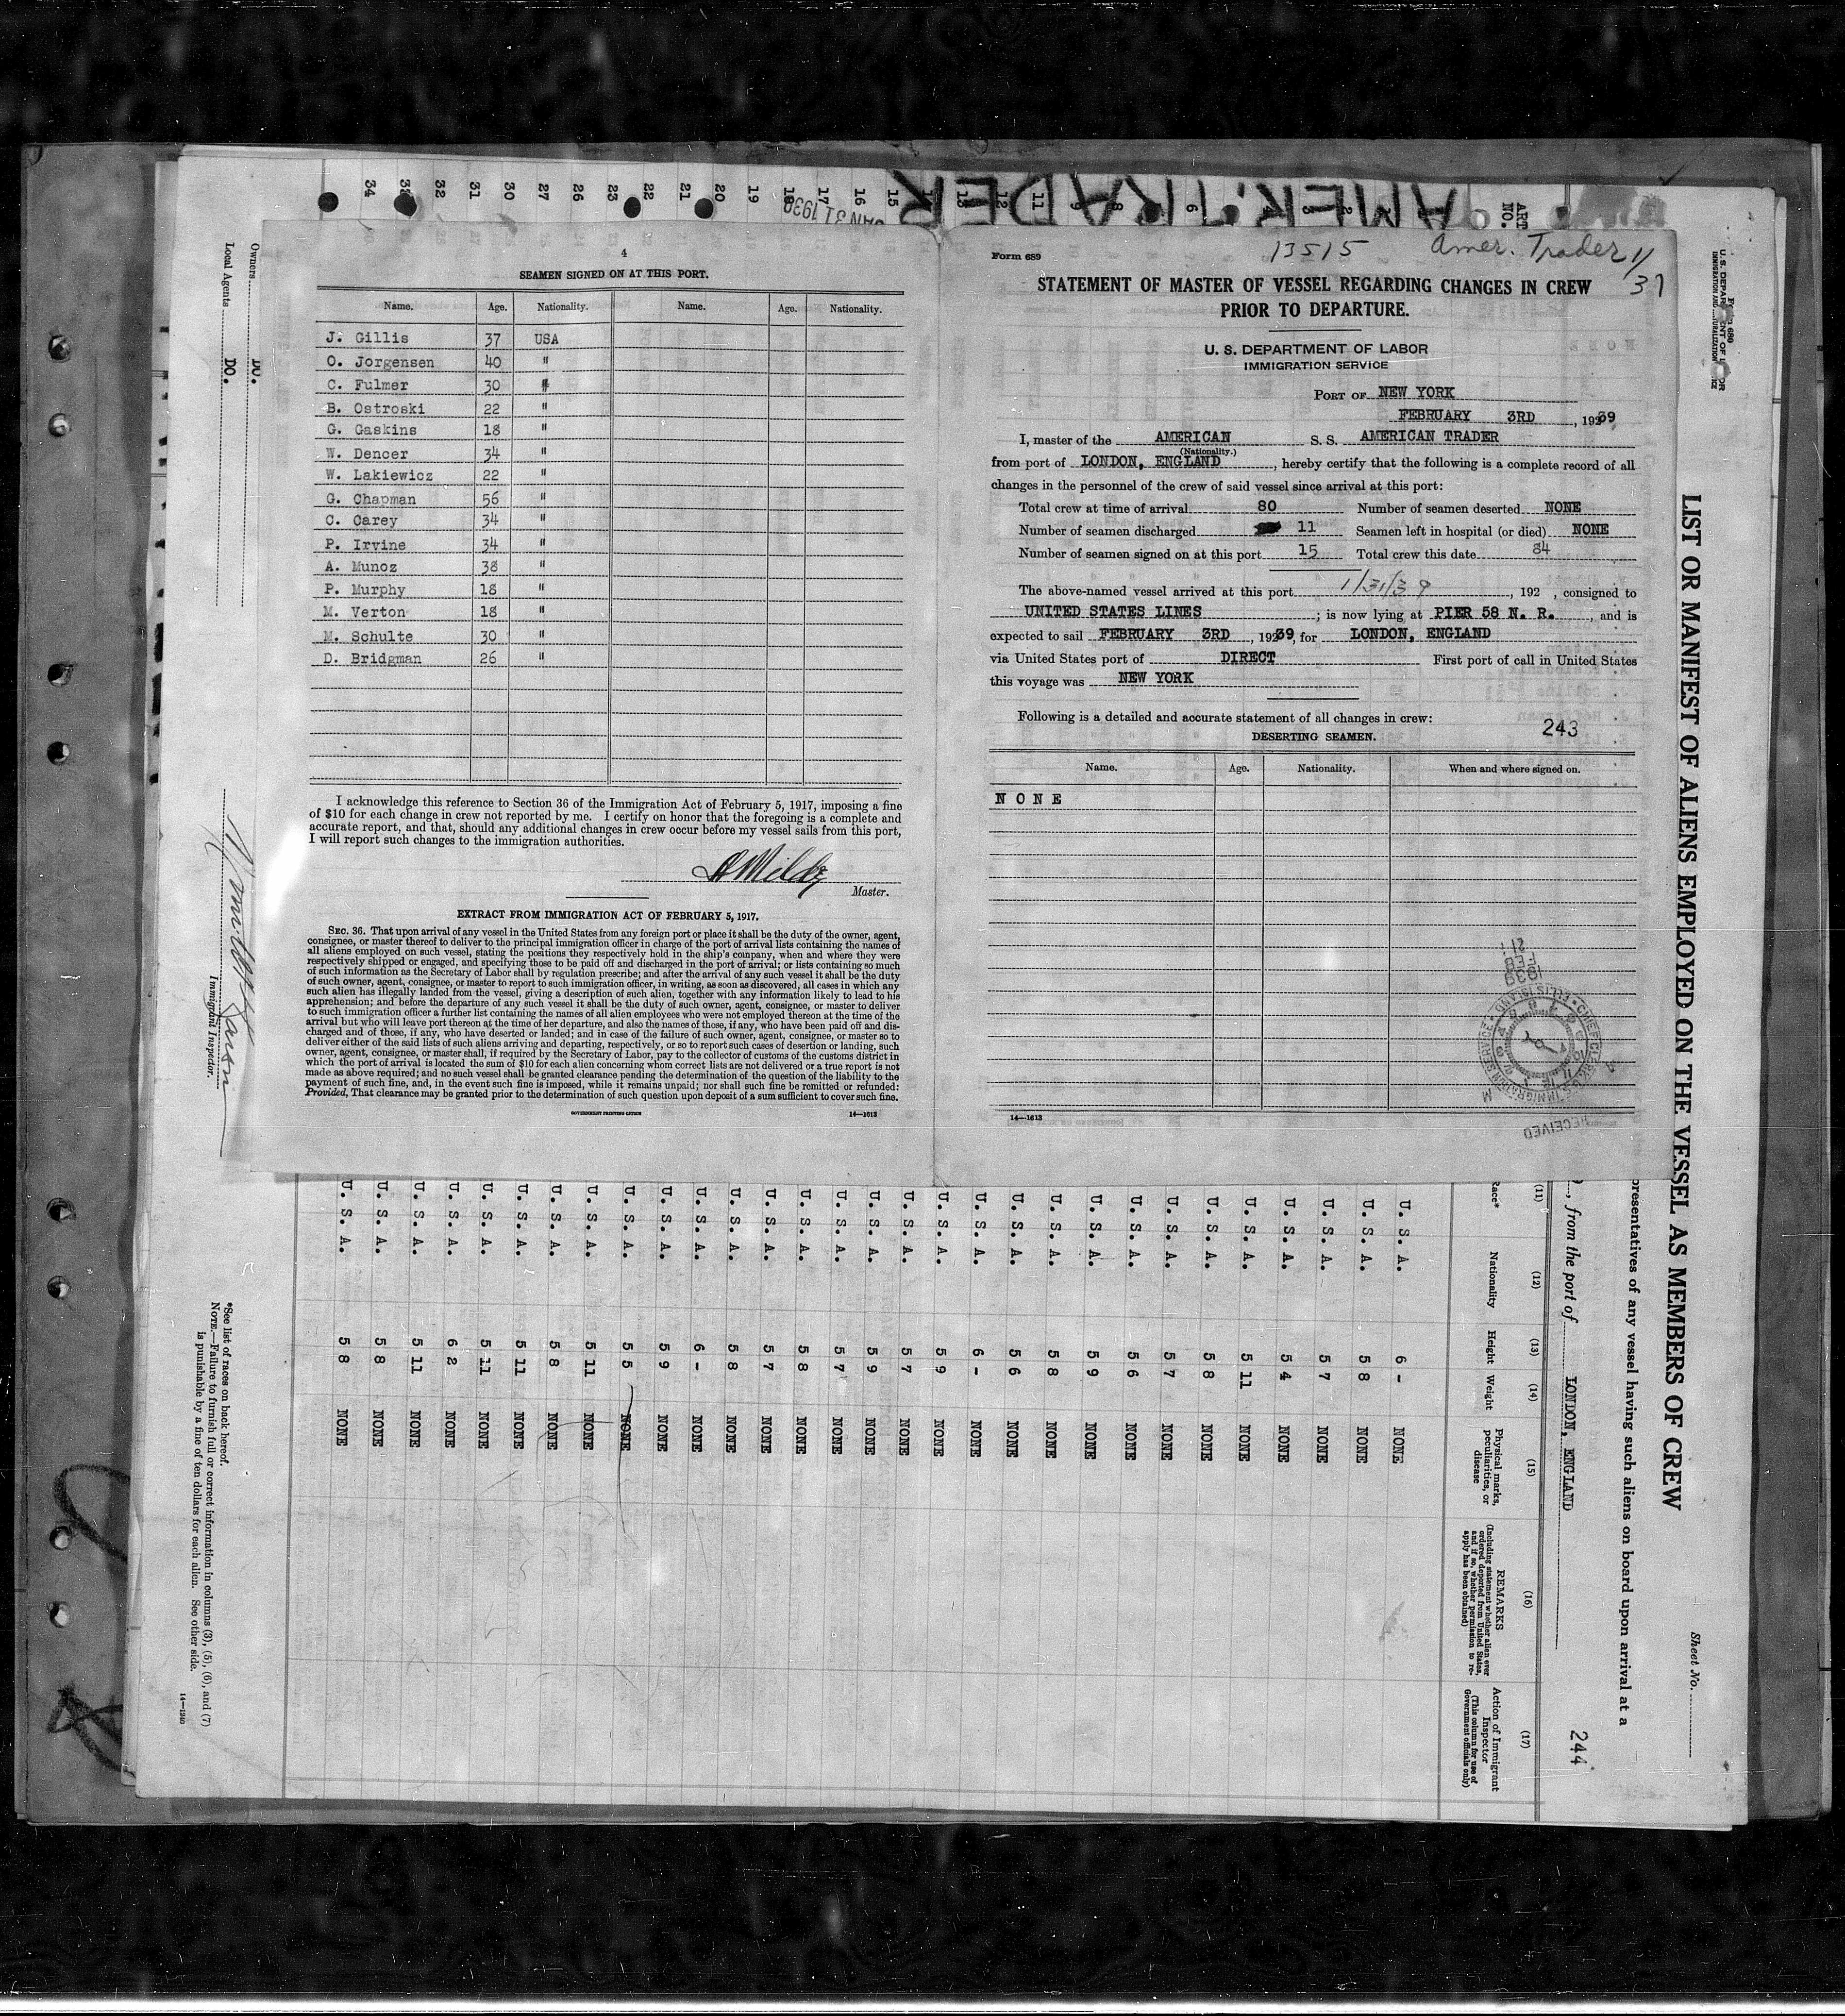 4
SEAMEN SIGNED ON AT THIS PORT.
Name. Age. Nationality. Name. Age. Nationality.
J. Gillis 37 USA
O. Jorgensen 40 "
C. Fulmer 30 "
B. Ostroski 22 "
G. Gaskins 18 "
W. Dencer 34 "
W. Lakiewicz 22 "
G. Chapman 56 "
C. Carey 34 "
P. Irvine 34 "
A. Munoz 38 "
P. Murphy 18 "
M. Verton 18 "
M. Schulte 30 "
D. Bridgman 26 "
I acknowledge this reference to Section 36 of the Immigration Act of February 5, 1917, imposing a fine
of $10 for each change in crew not reported by me. I certify on honor that the foregoing is a complete and
accurate report, and that, should any additional changes in crew occur before my vessel sails from this port,
I will report such changes to the immigration authorities.
Master.
EXTRACT FROM IMMIGRATION ACT OF FEBRUARY 5, 1917.
SEC. 36. That upon arrival of any vessel in the United States from any foreign port or place it shall be the duty of the owner, agent,
consignee, or master thereof to deliver to the principal immigration officer in charge of the port of arrival lists containing the names of
all aliens employed on such vessel, stating the positions they respectively hold in the ship's company, when and where they were
respectively shipped or engaged, and specifying those to be paid off and discharged in the port of arrival; or lists containing so much
of such information as the Secretary of Labor shall by regulation prescribe; and after the arrival of any such vessel it shall be the duty
of such owner, agent, consignee, or master to report to such immigration officer, in writing, as soon as discovered, all cases in which any
such alien has illegally landed from the vessel, giving a description of such alien, together with any information likely to lead to his
apprehension; and before the departure of any such vessel it shall be the duty of such owner, agent, consignee, or master to deliver
to such immigration officer a further list containing the names of all alien employees who were not employed thereon at the time of the
arrival but who will leave port thereon at the time of her departure, and also the names of those, if any, who have been paid off and dis-
charged and of those, if any, who have deserted or landed; and in case of the failure of such owner, agent, consignee, or master so to
deliver either of the said lists of such aliens arriving and departing, respectively, or so to report such cases of desertion or landing, such
owner, agent, consignee, or master shall, if required by the Secretary of Labor, pay to the collector of customs of the customs district in
which the port of arrival is located the sum of $10 for each alien concerning whom correct lists are not delivered or a true report is not
made as above required; and no such vessel shall be granted clearance pending the determination of the question of the liability to the
payment of such fine, and, in the event such fine is imposed, while it remains unpaid; nor shall such fine be remitted or refunded:
Provided, That clearance may be granted prior to the determination of such question upon deposit of a sum sufficient to cover such fine.
GOVERNMENT PRINTING OFFICE 14—1613
Form 689
13515 Amer. Trader
STATEMENT OF MASTER OF VESSEL REGARDING CHANGES IN CREW
PRIOR TO DEPARTURE.
U. S. DEPARTMENT OF LABOR
IMMIGRATION SERVICE
PORT OF NEW YORK
FEBRUARY 3RD, 1939,
I, master of the AMERICAN S. S. AMERICAN TRADER
(Nationality.)
from port of LONDON, ENGLAND, hereby certify that the following is a complete record of all
changes in the personnel of the crew of said vessel since arrival at this port:
Total crew at time of arrival 80 Number of seamen deserted NONE
Number of seamen discharged 11 Seamen left in hospital (or died) NONE
Number of seamen signed on at this port 15 Total crew this date 84
The above-named vessel arrived at this port 1/31/39, 192 , consigned to
UNITED STATES LINES; is now lying at PIER 58 N. R., and is
expected to sail FEBRUARY 3RD, 1939, for LONDON, ENGLAND
via United States port of DIRECT First port of call in United States
this voyage was NEW YORK
Following is a detailed and accurate statement of all changes in crew:
243
DESERTING SEAMEN.
Name. Age. Nationality. When and where signed on.
NONE
14—1613
RECEIVED
AMER. TRADER
JAN 31 1939
LIST OR MANIFEST OF ALIENS EMPLOYED ON THE VESSEL AS MEMBERS OF CREW
Sheet No.
presentatives of any vessel having such aliens on board upon arrival at a
, from the port of LONDON, ENGLAND
244
(11) (12) (13) (14) (15) (16) (17)
Nationality
Height
Weight
Physical marks, peculiarities, or disease
REMARKS
(Including statement whether alien ever ordered deported from United States, and if so, whether permission to re-apply has been obtained)
Action of Immigrant Inspector
(This column for use of Government officials only)
U. S. A. 6 - NONE
U. S. A. 5 8 NONE
U. S. A. 5 7 NONE
U. S. A. 5 4 NONE
U. S. A. 5 11 NONE
U. S. A. 5 8 NONE
U. S. A. 5 7 NONE
U. S. A. 5 6 NONE
U. S. A. 5 9 NONE
U. S. A. 5 8 NONE
U. S. A. 5 6 NONE
U. S. A. 6 - NONE
U. S. A. 5 9 NONE
U. S. A. 5 7 NONE
U. S. A. 5 9 NONE
U. S. A. 5 7 NONE
U. S. A. 5 8 NONE
U. S. A. 5 7 NONE
U. S. A. 5 8 NONE
U. S. A. 6 - NONE
U. S. A. 5 9 NONE
U. S. A. 5 5 NONE
U. S. A. 5 11 NONE
U. S. A. 5 8 NONE
U. S. A. 5 11 NONE
U. S. A. 5 11 NONE
U. S. A. 6 2 NONE
U. S. A. 5 11 NONE
U. S. A. 5 8 NONE
U. S. A. 5 8 NONE
Owners DO.
Local Agents DO.
Immigrant Inspector.
*See list of races on back hereof.
NOTE.—Failure to furnish full or correct information in columns (3), (5), (6), and (7)
is punishable by a fine of ten dollars for each alien. See other side.
14—1240